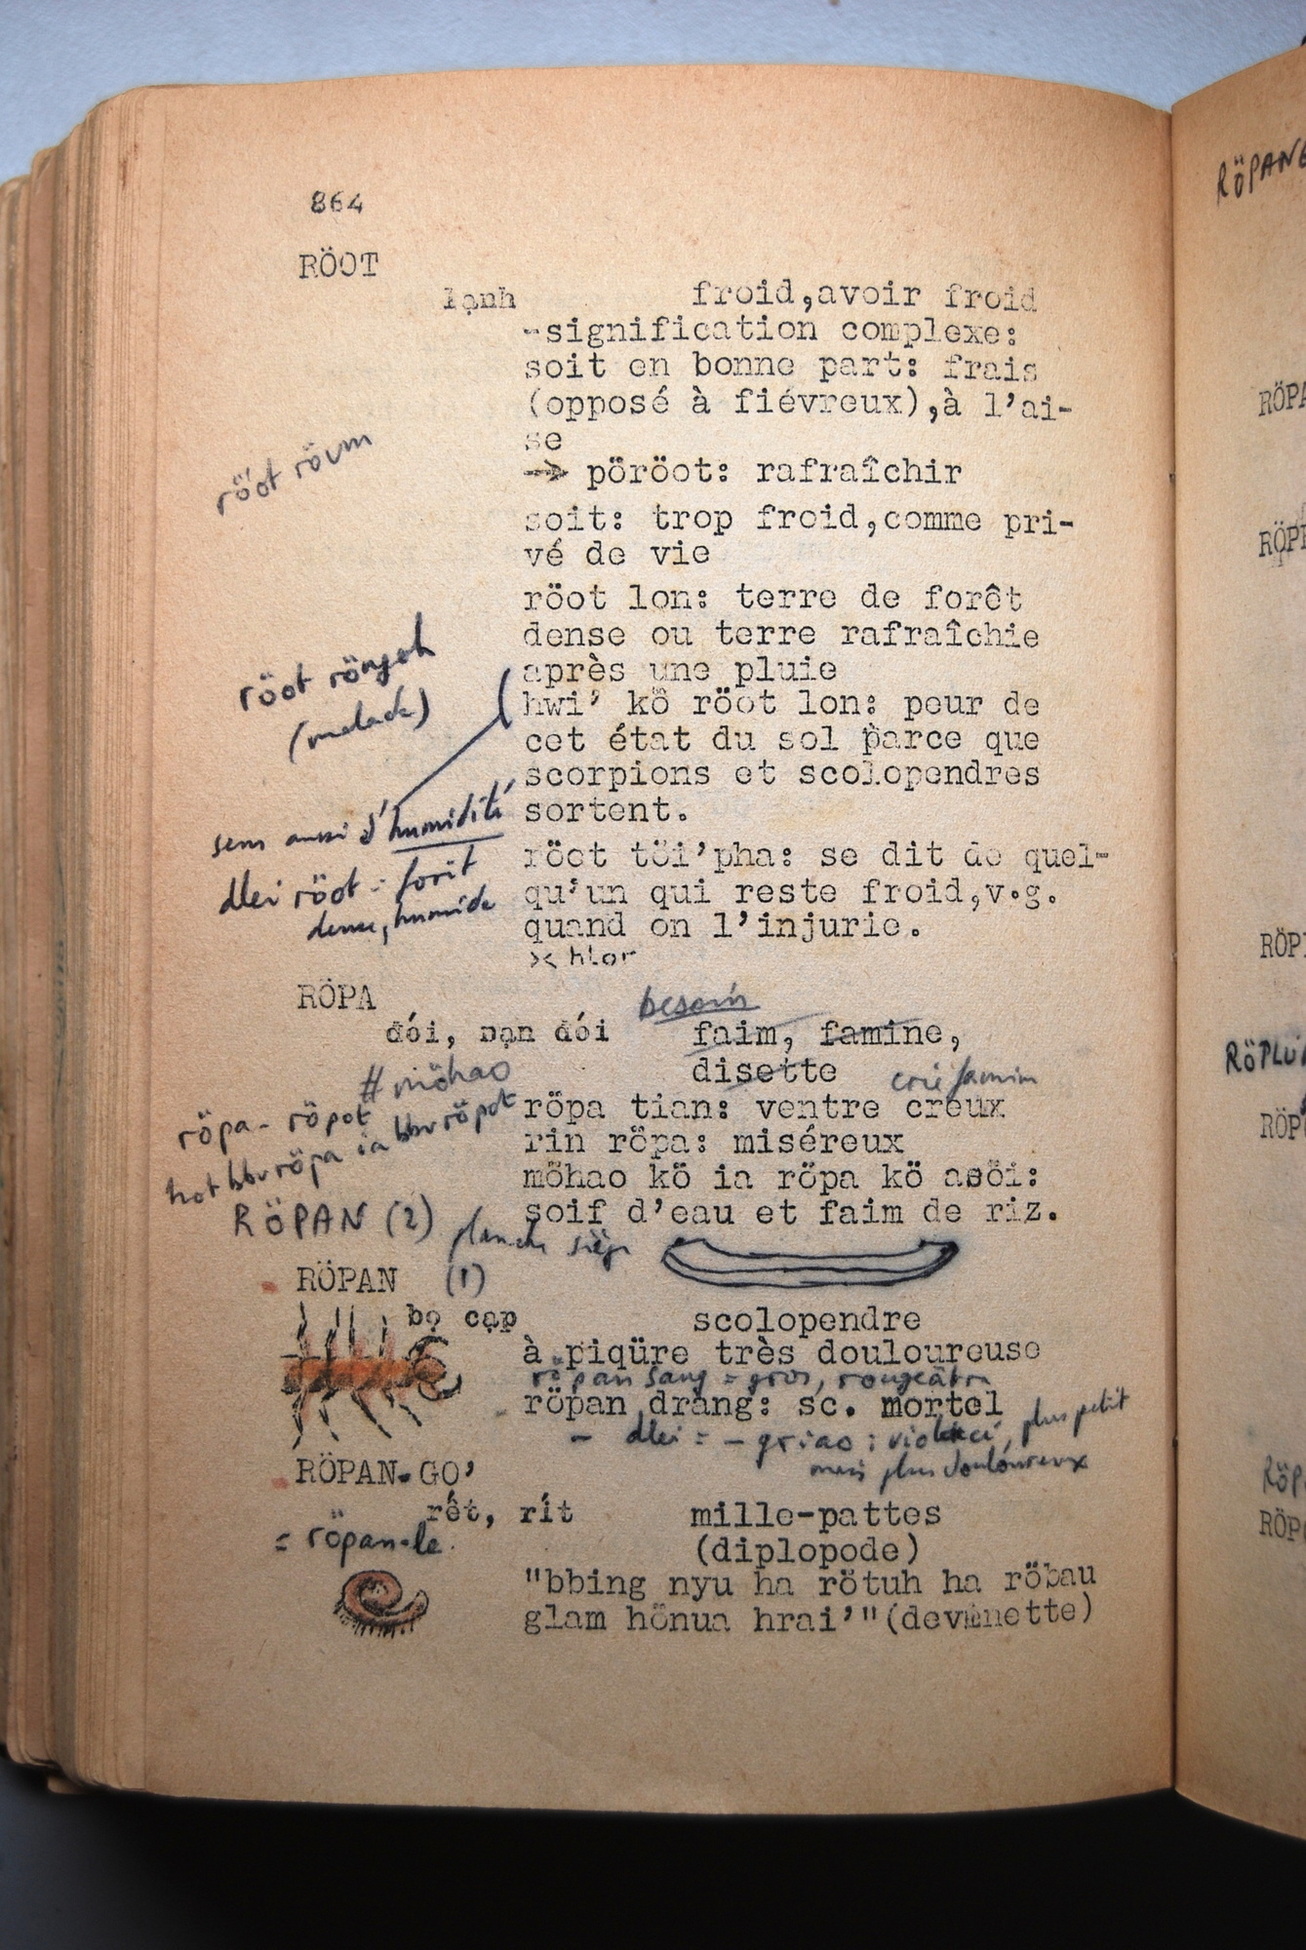 864
RÖOT
lạnh froid,avoir froid
-signification complexe:
soit en bonne part: frais
(opposé à fiévreux),à l'ai-
se
→ pöröot: rafraîchir
röot rövm
soit: trop froid,comme pri-
vé de vie
röot lon: terre de forêt
dense ou terre rafraîchie
après une pluie
röot röngoh
(malade)
hwi' kö röot lon: peur de
cet état du sol parce que
scorpions et scolopendres
sortent.
sens aussi d'humidité
dlei röot = forêt
dense, humide
röot töi'pha: se dit de quel-
qu'un qui reste froid,v.g.
quand on l'injurie.
>< hlor
RÖPA
besoin
đói, nạn đói faim, famine,
disette
≠ möhao
crie famine
röpa - röpot
hot bbv röpa ia bbv röpot
röpa tian: ventre creux
rin röpa: miséreux
möhao kö ia röpa kö asöi:
soif d'eau et faim de riz.
RÖPAN (2) planche siège
RÖPAN (1)
bọ cạp scolopendre
à piqüre très douloureuse
röpan sang = gros, rougeâtre
röpan drang: sc. mortel
- dlei = - griao : violacé, plus petit
mais plus douloureux
RÖPAN-GO'
rết, rít mille-pattes
= röpan-le.
(diplopode)
"bbing nyu ha rötuh ha röbau
glam hönua hrai'"(devinette)
RÖPANG
RÖPA
RÖPLU